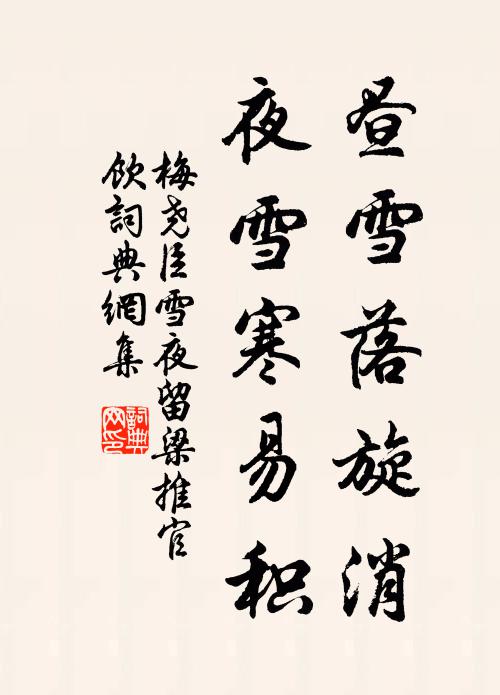 昼雪落旋消
夜雪寒易积
梅尧臣雪夜留梁推官
饮詞典網集
詞典網印